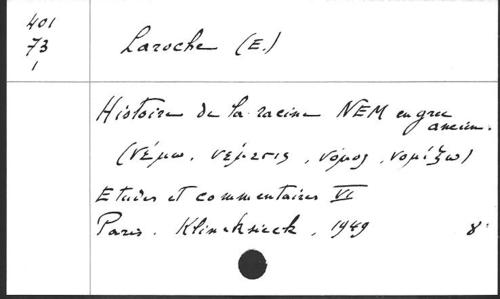 401
73
1
Laroche (E.)
Histoire de la racine NEM en grec
ancien.
(νέμω, νέμεσις, νόμος, νομίζω)
Etudes et commentaires VI
Paris. Klincksieck, 1949 8°